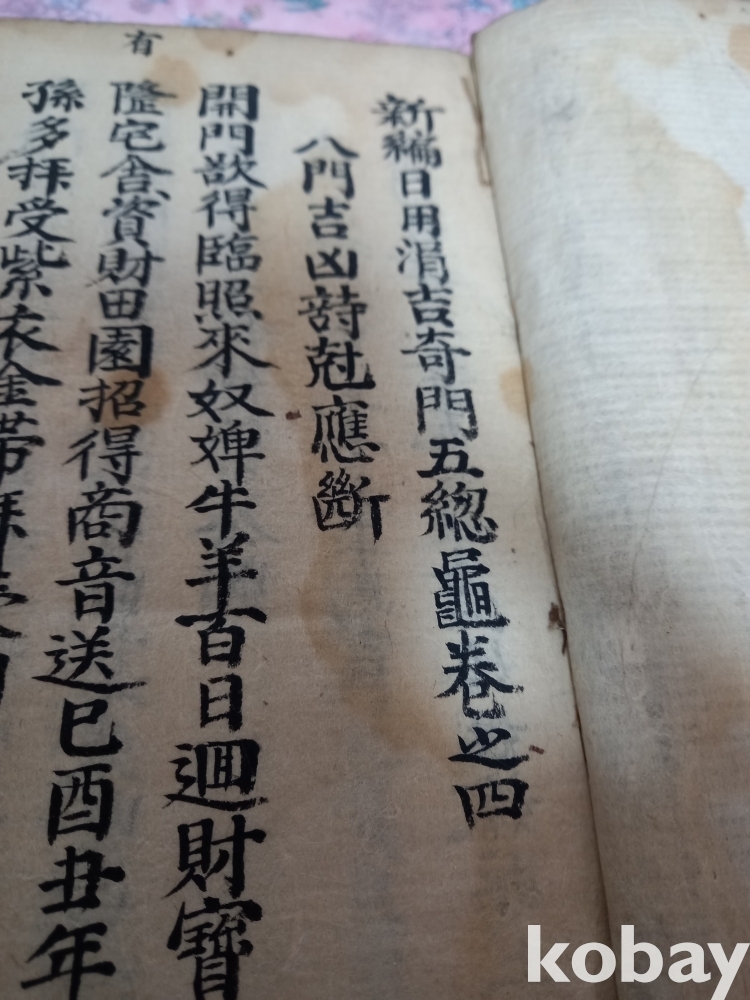 新編日用涓吉奇門五総龜卷之四
八門吉凶詩尅應斷
開門欲得臨照來奴婢牛羊百日週財寶
有
隆宅舎資財田園招得商音送巳酉丑年
孫多拜受紫衣金帶拜
kobay